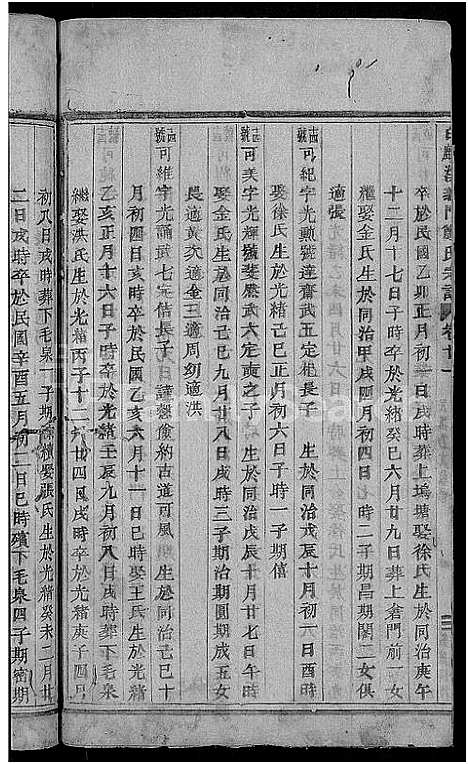 卒於民國乙卯正月初六日戌時葬上塢塘娶徐氏生於同治庚午
十二月十七子時卒於光緒癸巳六月廿九日葬上倉門前一女
繼娶金氏生於同治甲戌四月初四日時二子期昌期閑二女俱
適張
可紀字光勲號達齋武五定柤長子 生於同治戊辰十月初六日酉時
娶徐氏生於同治己巳正月初一子期僖
可美字光輝號斐武六定之子 生於同治戊辰十月廿七日午時
娶金氏生於同治己巳八月廿八日戌時三子期治期圓期成五女
長適黄次適金三適周幼適洪
可維字光誦武七定信長子 謹穀儉約古道可風 生於同治己巳十
月初四日亥時卒於民國乙亥六月十一日巳時娶王氏生於光緒
乙亥正月十六日子時卒於光緒壬辰九月初八日戌時葬下毛泉
繼娶洪氏生於光緒丙子十二月廿四日戌時卒於光緒庚子四月
初八日戌時葬下毛泉一子期續娶張氏生於光緒癸未二月廿
二日戌時卒於民國辛酉五月初二日巳時殯下毛泉四子期宿期